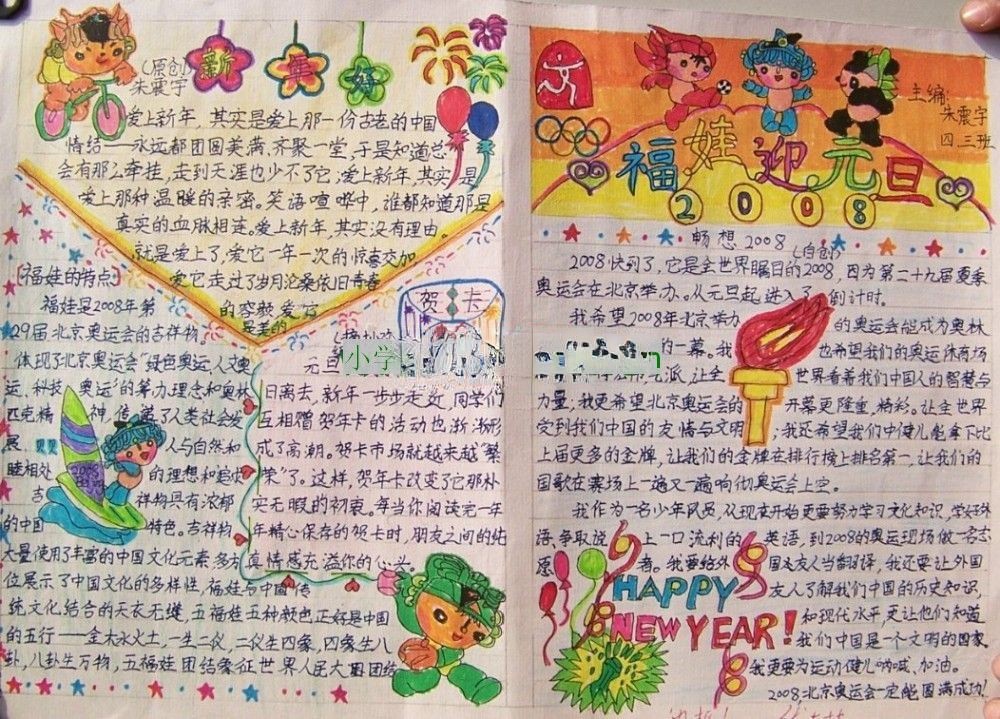 新年好
(原创)
朱震宇
爱上新年，其实是爱上那一份古老的中国
情结——永远都团圆美满、齐聚一堂，于是知道总
会有那么牵挂，走到天涯也少不了它；爱上新年，其实是
爱上那种温暖的亲密。笑语喧哗中，谁都知道那是
真实的血脉相连。爱上新年，其实没有理由。
就是爱上了，爱它一年一次的惊喜交加
爱它走过了岁月沧桑依旧青春
的容颜爱它
是美的
[福娃的特点]
福娃是2008年第
29届北京奥运会的吉祥物。
体现了北京奥运会“绿色奥运、人文奥
运、科技奥运”的筹办理念和奥林
匹克精神，传递了人类社会发
展
人与自然和
睦相处的理想和
吉祥物具有浓郁
的中国特色。吉祥物
大量使用了丰富的中国文化元素，多方
位展示了中国文化的多样性，福娃与中国传
统文化结合的天衣无缝，五福娃五种颜色正好是中国
的五行——金木水火土，一生二仪，二仪生四象，四象生八
卦，八卦生万物，五福娃团结象征世界人民大团结
贺卡
小学
元旦
日离去，新年一步步走近，同学们
互相赠贺年卡的活动也渐渐形
成了高潮。贺卡市场就越来越“繁
荣”了。这样，贺年卡改变了它那朴
实无暇的初衷。每当你阅读完一年
年精心保存的贺卡时，朋友之间的纯
真情感充溢你的心头。
主编：
朱震宇
四三班
福娃迎元旦
2008
畅想2008
(自创)
2008快到了，它是全世界瞩目的2008，因为第二十九届夏季
奥运会在北京举办。从元旦起进入了倒计时。
我希望2008年北京举办的奥运会能成为奥林
的一幕。我也希望我们的奥运体育场
派，让全世界看着我们中国人的智慧与
力量，我更希望北京奥运会的开幕更隆重，精彩。让全世界
受到我们中国的友情与文明，我还希望我们中健儿能拿下比
上届更多的金牌，让我们的金牌在排行榜上排名第一，让我们的
国歌在赛场上一遍又一遍响彻奥运会上空。
我作为一名少年队员，从现在开始更要努力学习文化知识，学好外
语，争取说上一口流利的英语，到2008的奥运现场做一名志
愿者。我要给外国友人当翻译，我还要让外国
友人了解我们中国的历史知识，
和现代水平，更让他们知道
我们中国是一个文明的国家。
我更要为运动健儿呐喊、加油。
2008北京奥运会一定能圆满成功！
HAPPY
NEW YEAR!